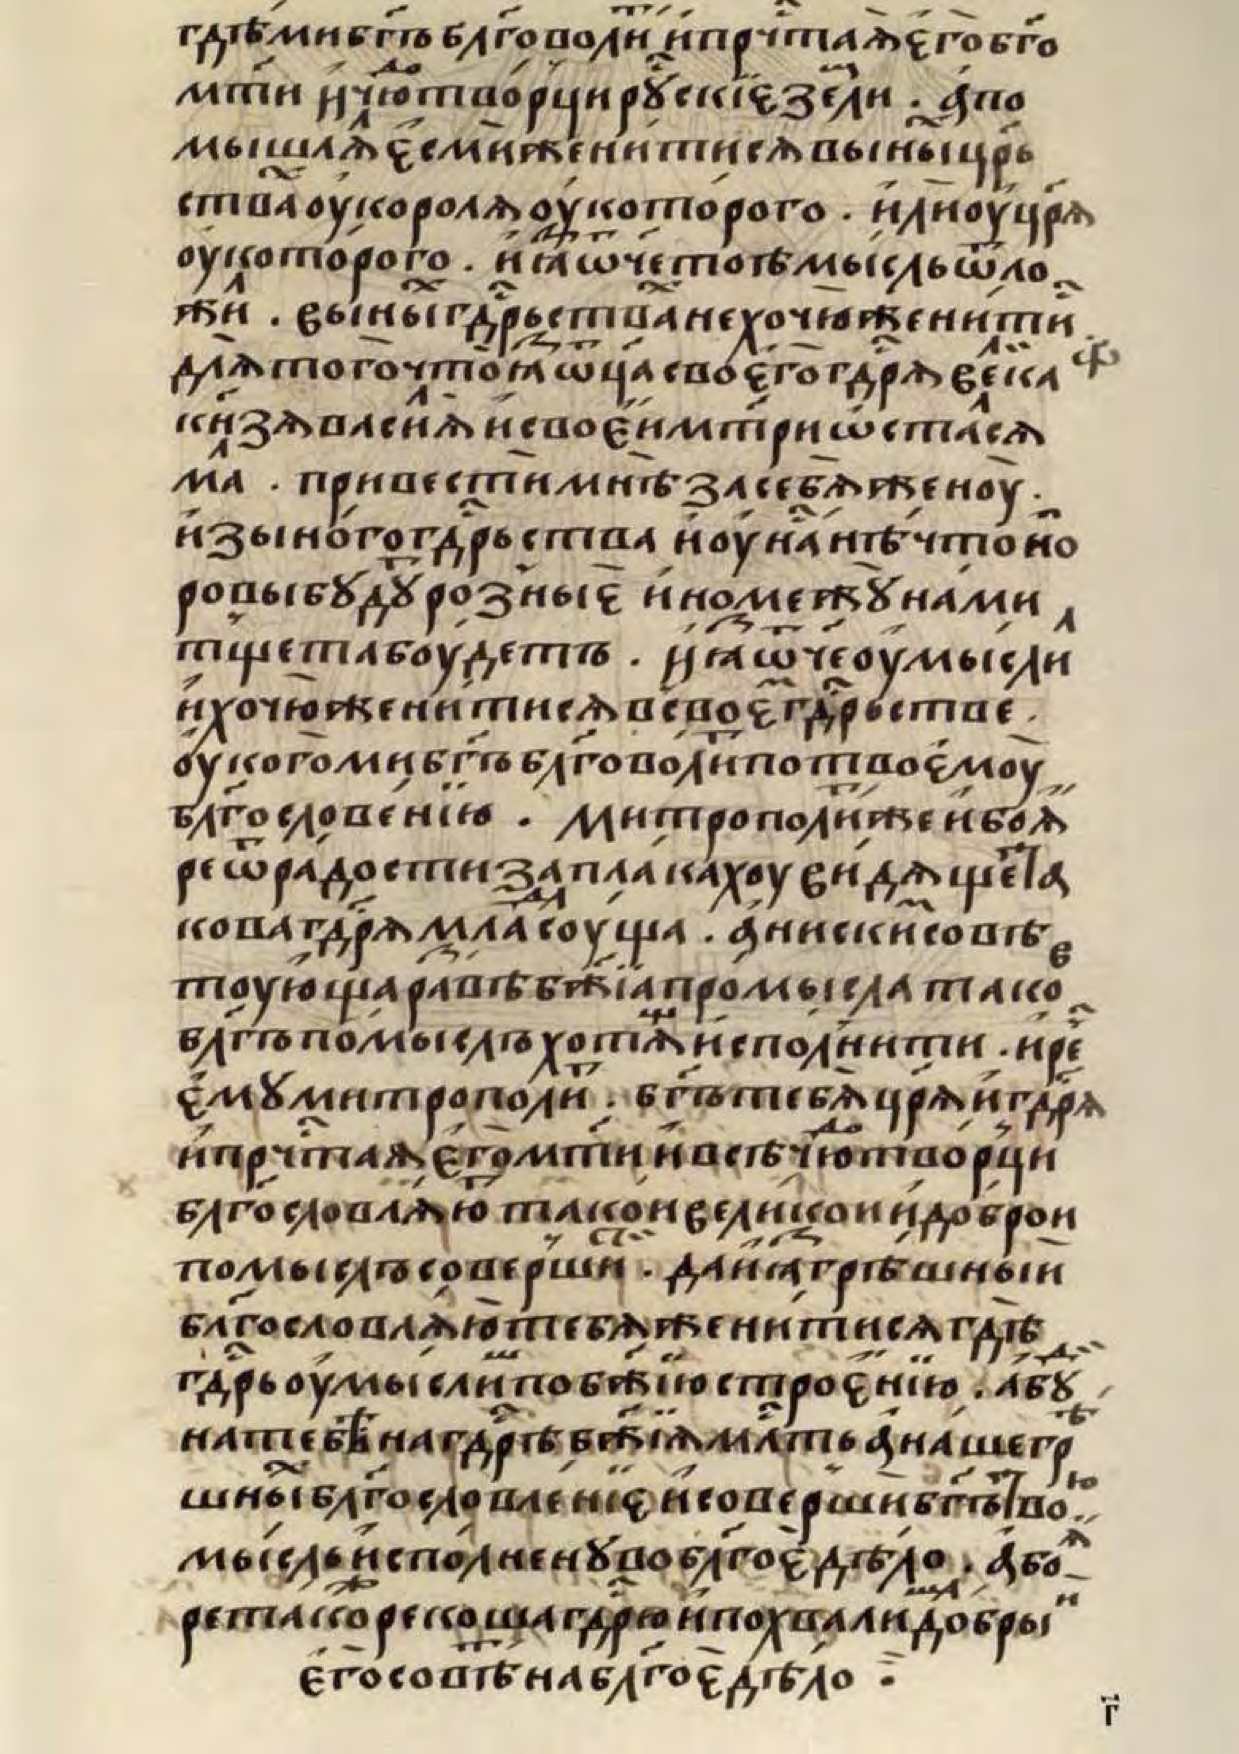 гдѣ ми бг҃ъ бл҃говоли́т и҆ прⷱ҇таѧ є҆го̀ бг҃о
мт҃и и҆ чюдотво́рци рꙋ́скїе зеⷨли . а҆ по
мышлѧⷧ є҆сми̑ жени́тисѧ в ы҆ны́х црⷭ҇ь
ствах оу҆ королѧ̀ оу҆ кото́рого . и҆лѝ оу҆ цр҃ѧ
оу҆ кото́рого . и҆ ꙗ҆з ѿч҃е тѹ мы́сль ѿло
жи́л . в ы҆ны́х гдⷭ҇рьствах не хочю̀ жени́тис
длѧ̀ того̀ что̀ ꙗ҆з ѿц҃а своєго̀ гдⷭ҇рѧ вели́ка
кнѧ҃зѧ васи́льѧ и҆ своє́и мт҃ри ѡ҆ста́лсѧ
мал . привестѝ мнѣ̀ за себѧ̀ женоу̀ .
и҆з ы҆но́го гдⷭ҇рьства и҆ оу҆ нас нѣ́что но́
ровы бꙋ́дꙋт ро́зные и҆но межꙋ нами
тщета̀ боу́детъ . и҆ ꙗ҆з ѿч҃е оу҆мы́слил
и҆ хочю̀ жени́тисѧ в своєм гдⷭ҇рьстве .
оу҆ кого̀ ми бг҃ъ бл҃говоли́т по твоємоу̀
бл҃гослове́нїю . Митрополи́т же и҆ боѧ̀
ре ѿ ра́дости запла́кахоу ви́дѧще та
кова гдⷭ҇рѧ мла́да соу́ща . а҆ ни с кѣ́м совѣ
тоу́юща ра́звѣ бж҃їа про́мысла тако́в
бл҃гъ по́мыслъ хотѧ́ща и҆спо́лнити . и҆ рє́ч
є҆мꙋ̀ митрополи́т . бг҃ъ тебѧ̀ цр҃ѧ и҆ гдⷭ҇рѧ
и҆ прⷱ҇таѧ є҆го̀ мт҃и и҆ всѣ̀ чюдотво́рци
бл҃гословлѧ́ют такои вели́кои и҆ до́брои
по́мыслъ соверши́ти . да и҆ ꙗ҆з грѣ́шныи
бл҃гословлѧ́ю тебѧ̀ жени́тисѧ гдѣ̀
гдⷭ҇рь оу҆мы́слиш по бж҃їю строє́нїю . а҆ бꙋ́ди
на тебѣ̀ на гдⷭ҇рѣ бж҃їѧ млⷭ҇ть а҆ на́ше грѣ́
шных бл҃гословле́нїе и҆ соверши́т бг҃ъ твою̀
мы́сль и҆спо́лненꙋ во бл҃гоє дѣ́ло . а҆ боѧ́
ре та́кож реко́ша гдⷭ҇рю и҆ похвали́ша до́брыи
є҆го̀ совѣ́т на бл҃гоє дѣ́ло :
г҃